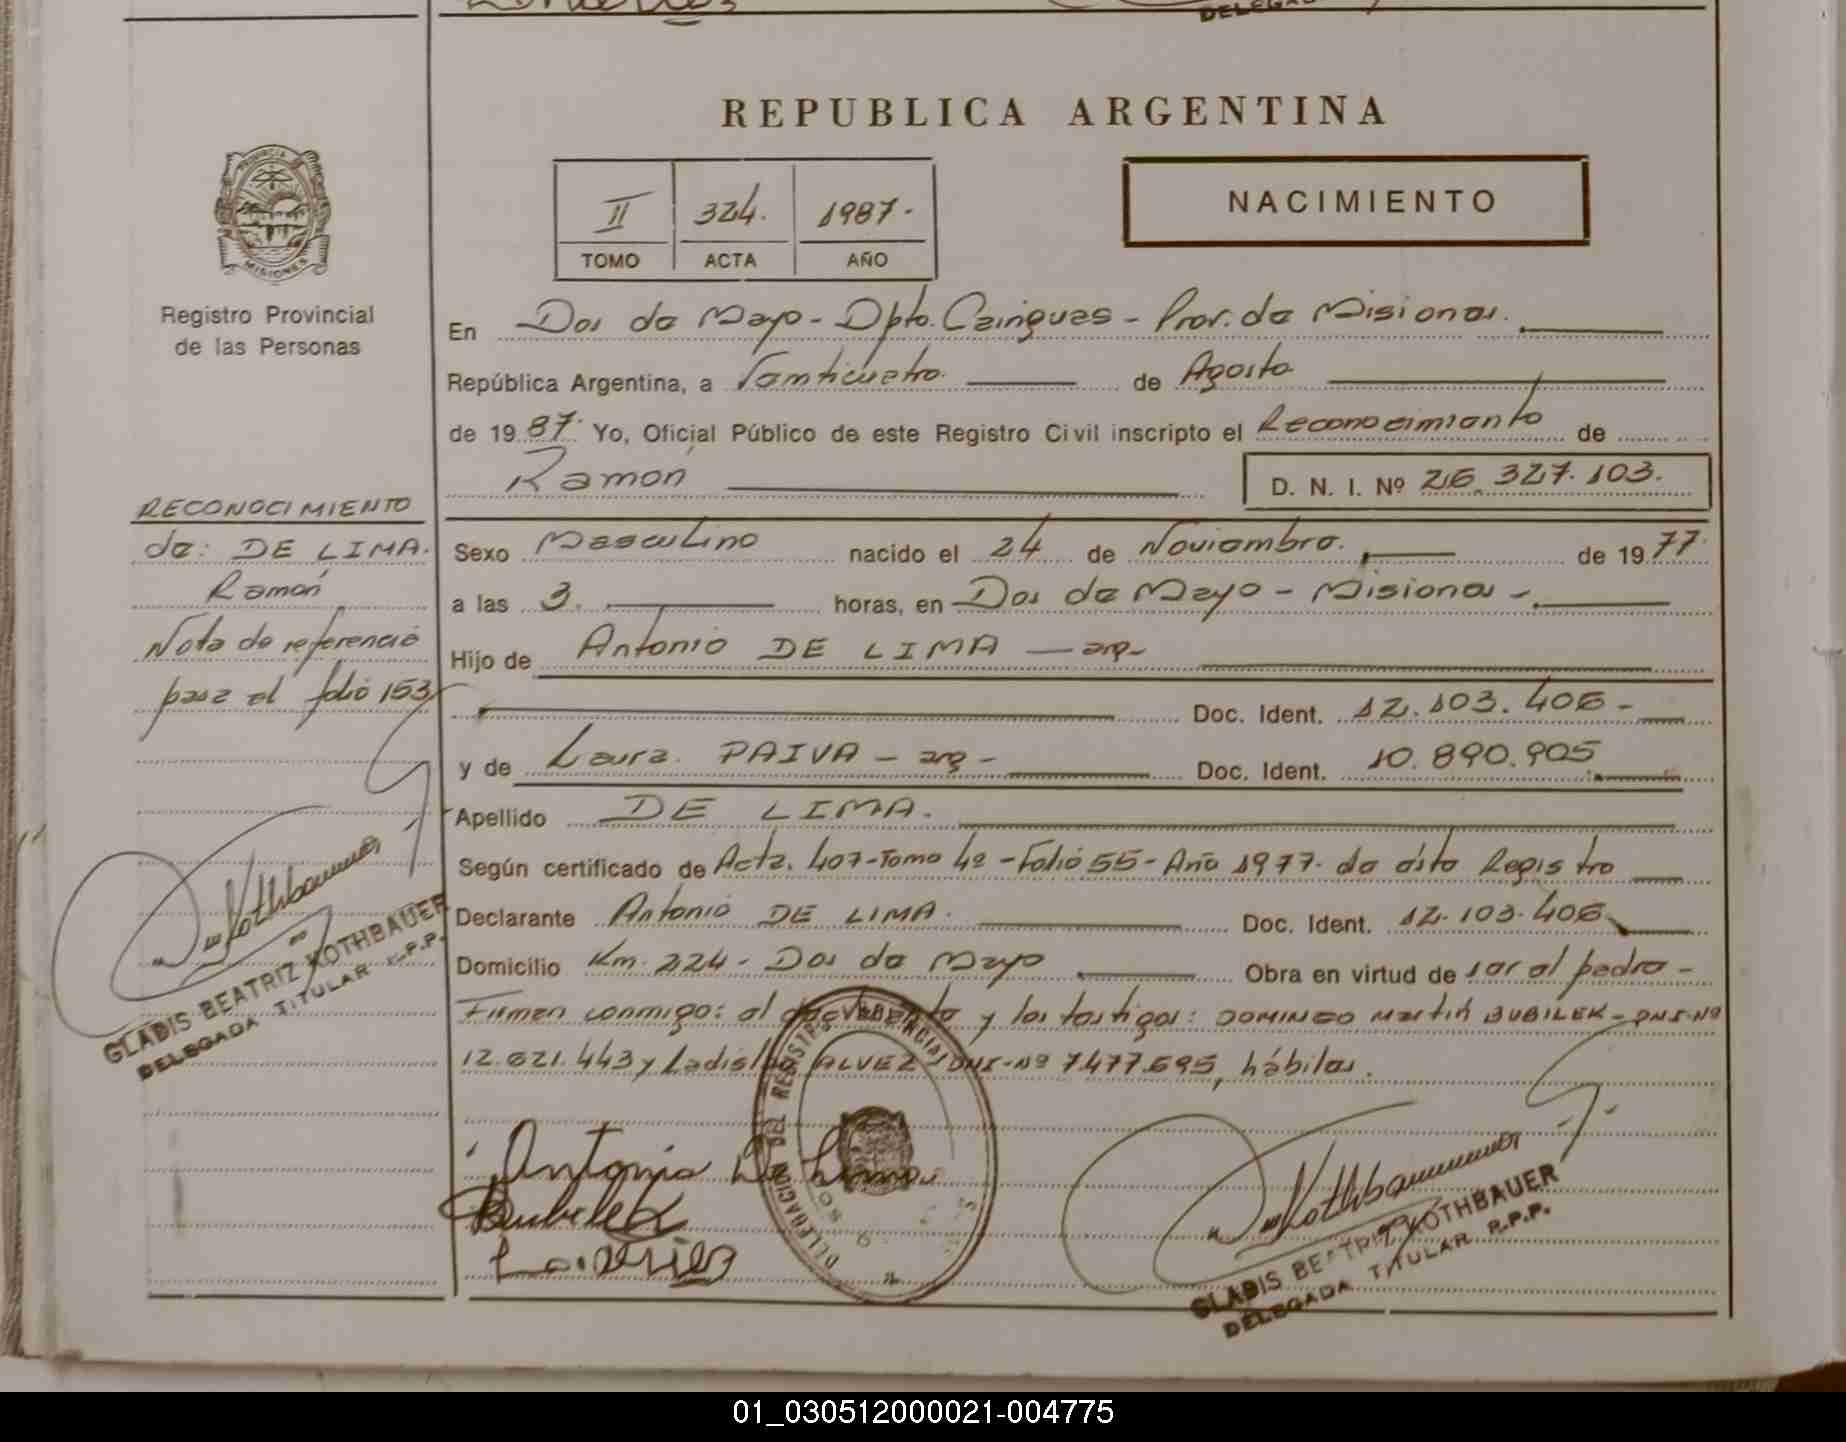 DELEGAD
REPUBLICA ARGENTINA
PROVINCIA
MISIONES
Registro Provincial
de las Personas
II 324. 1987.
TOMO ACTA AÑO
NACIMIENTO
En Dos de Mayo - Dpto. Cainguas - Prov. de Misiones.
República Argentina, a Veinticuatro de Agosto
de 1987. Yo, Oficial Público de este Registro Civil inscripto el Reconocimiento de
Ramón D. N. I. Nº 26.327.103.
Sexo Masculino nacido el 24 de Noviembre. de 1977.
a las 3. horas, en Dos de Mayo - Misiones -
Hijo de Antonio DE LIMA — arg -
Doc. Ident. 12.103.406 -
y de Laura PAIVA - arg - Doc. Ident. 10.890.905
Apellido DE LIMA.
Según certificado de Acta. 407 - Tomo 4º - Folio 55 - Año 1977. de ésta Registro
Declarante Antonio DE LIMA. Doc. Ident. 12.103.406
Domicilio Km. 224 - Dos de Mayo Obra en virtud de ser el padre -
Firman conmigo: el y los testigos: DOMINGO Martin BUBILEK - DNI-Nº
12.621.443 y Ladislao ALVEZ DNI-Nº 7.477.695, hábiles.
RECONOCIMIENTO
de: DE LIMA.
Ramón
Nota de referencia
pasa al folio 153
GLADIS BEATRIZ KOTHBAUER
DELEGADA TITULAR R.P.P.
Antonio De Lima
Bubilek
DELEGACION DEL REGISTRO PROVINCIAL
GLADIS BEATRIZ KOTHBAUER
DELEGADA TITULAR R.P.P.
01_030512000021-004775